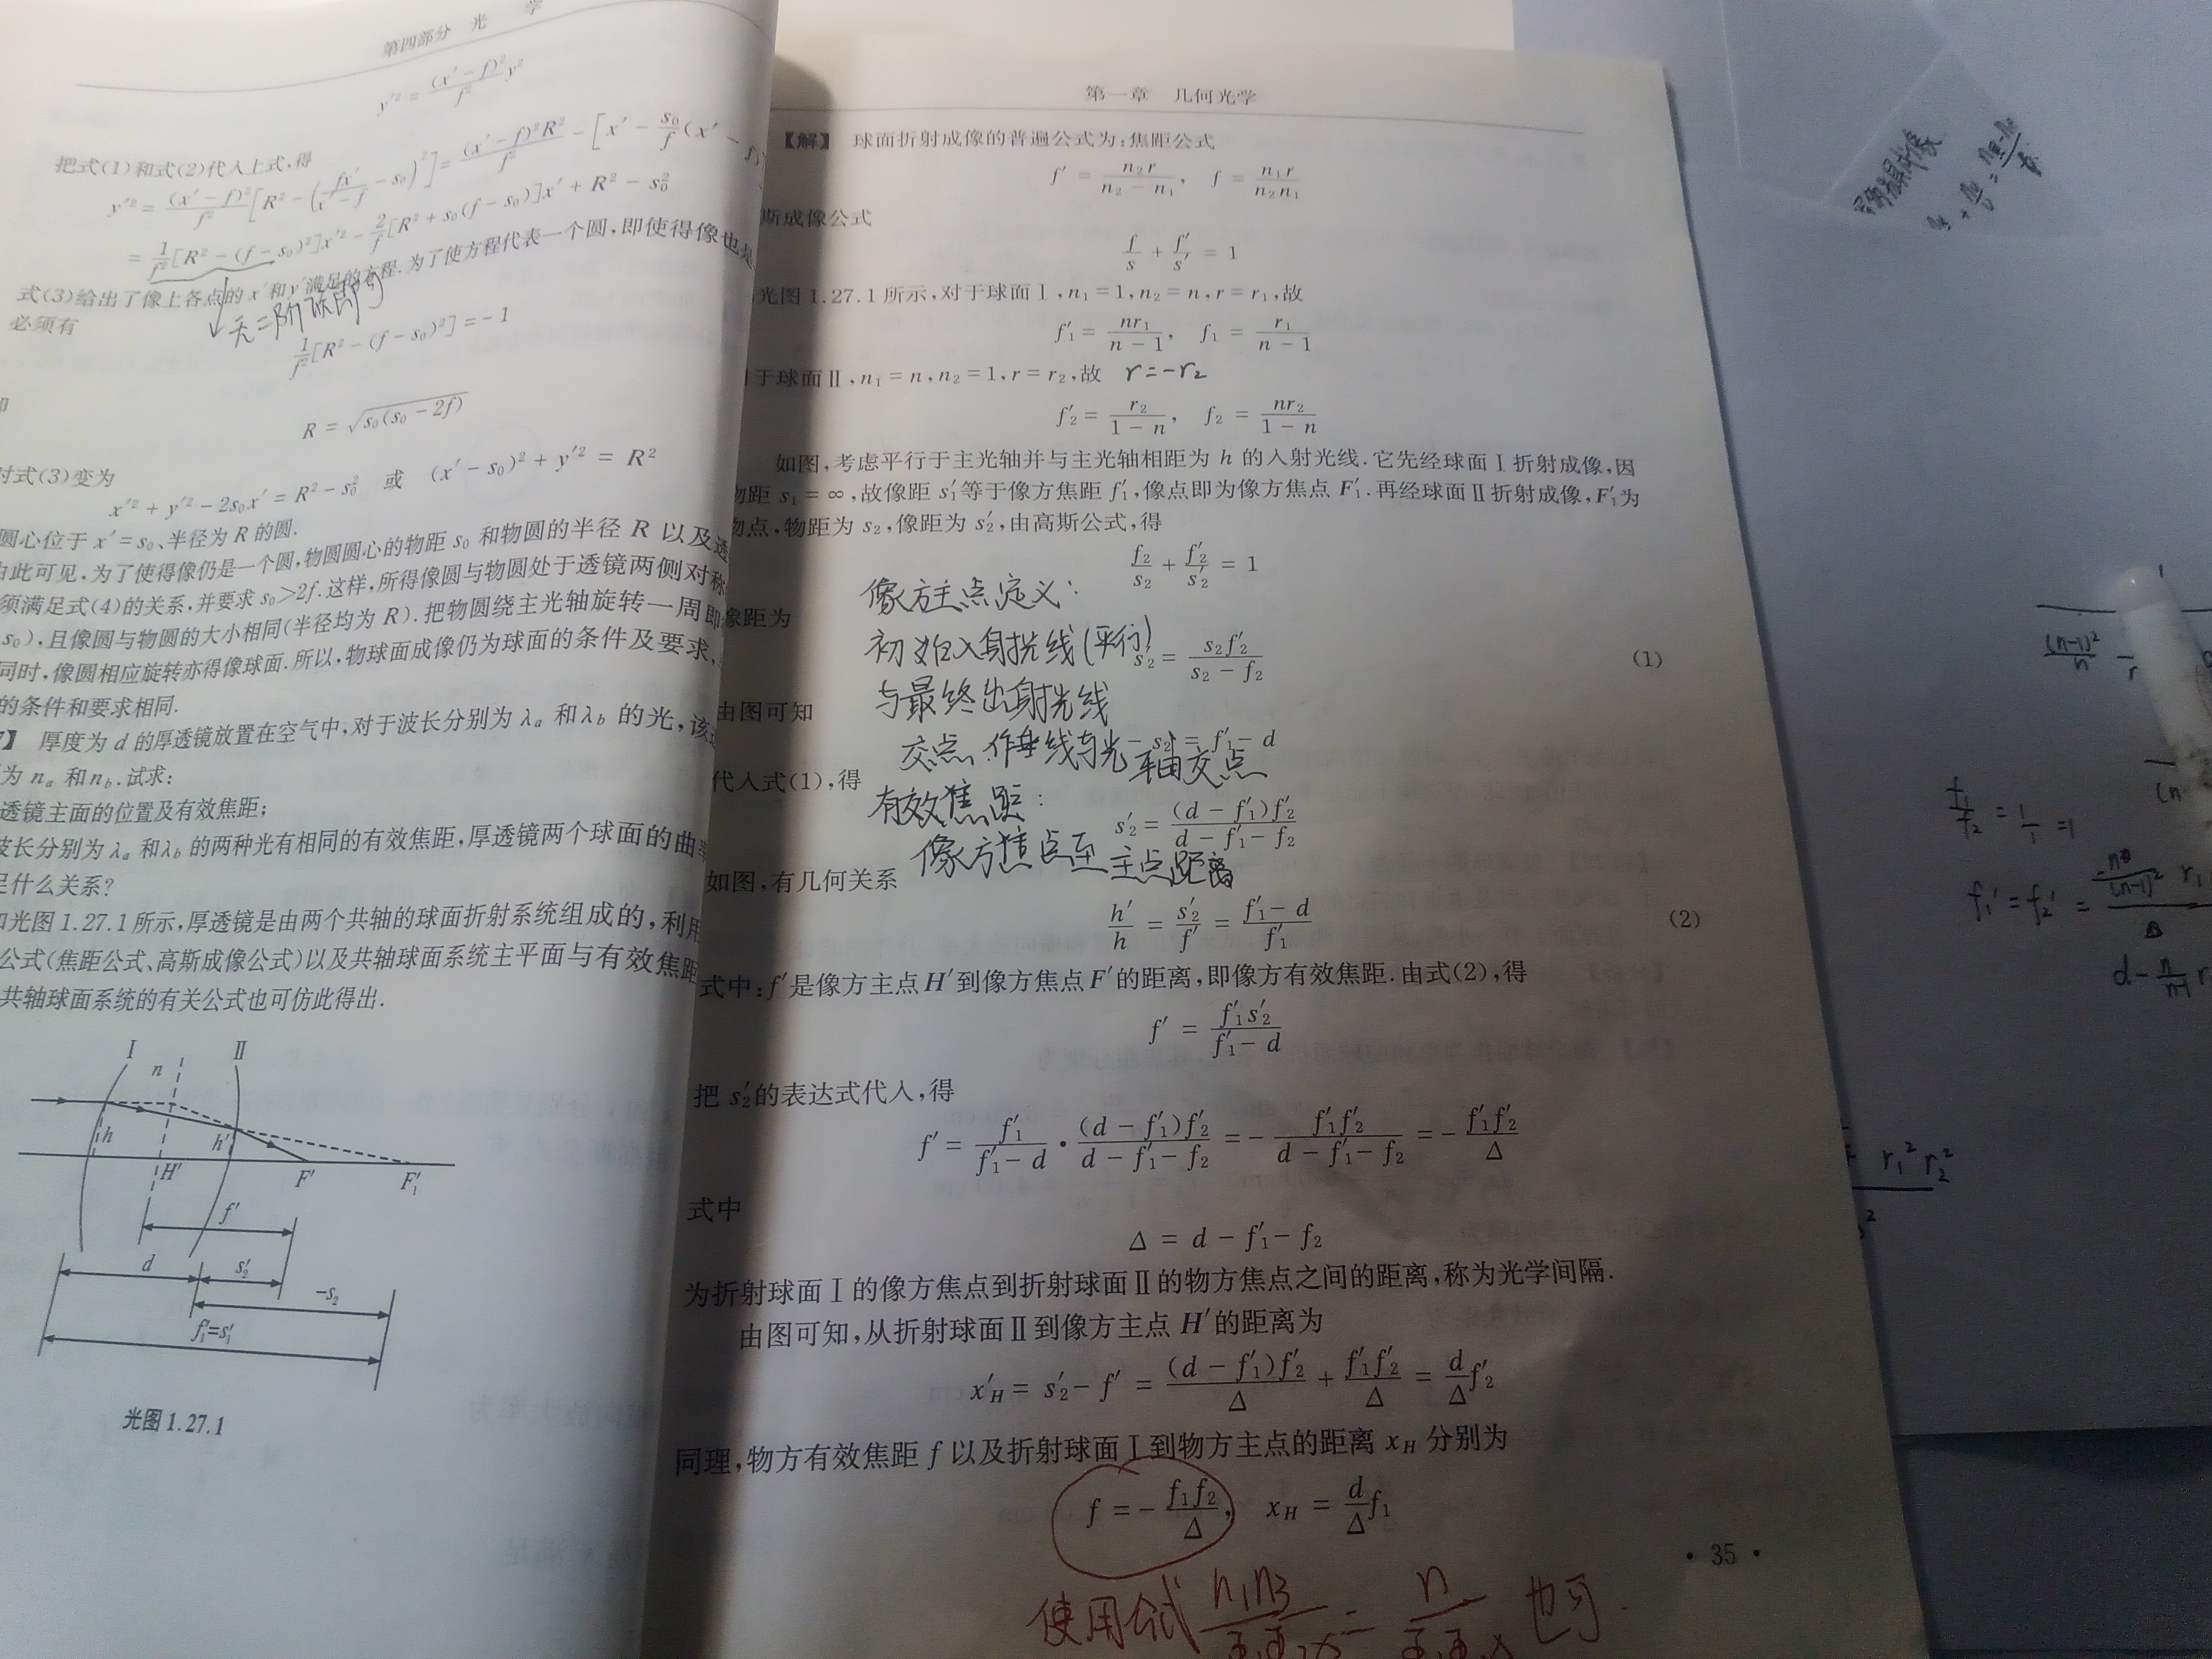 第四部分 光 学
y'² = (x'-f)²/f² y²
把式(1)和式(2)代入上式,得
y'² = (x'-f)²/f² [R² - (fx'/(x'-f) - s₀)²] = (x'-f)²R²/f² - [x' - s₀/f (x' - f)
= 1/f² [R² - (f-s₀)²]x'² - 2/f [R² + s₀(f-s₀)]x' + R² - s₀²
式(3)给出了像上各点的 x' 和 y' 满足的方程.为了使方程代表一个圆,即使得像也是
必须有
无二阶
1/f² [R² - (f-s₀)²] = -1
R = √(s₀(s₀-2f))
时式(3)变为
x'² + y'² - 2s₀x' = R² - s₀² 或 (x'-s₀)² + y'² = R²
圆心位于 x' = s₀、半径为 R 的圆.
由此可见,为了使得像仍是一个圆,物圆圆心的物距 s₀ 和物圆的半径 R 以及透
须满足式(4)的关系,并要求 s₀>2f.这样,所得像圆与物圆处于透镜两侧对称
s₀),且像圆与物圆的大小相同(半径均为 R).把物圆绕主光轴旋转一周即
同时,像圆相应旋转亦得像球面.所以,物球面成像仍为球面的条件及要求,
的条件和要求相同.
】 厚度为 d 的厚透镜放置在空气中,对于波长分别为 λₐ 和 λ_b 的光,该
为 nₐ 和 n_b.试求:
透镜主面的位置及有效焦距;
波长分别为 λₐ 和 λ_b 的两种光有相同的有效焦距,厚透镜两个球面的曲率
是什么关系?
如光图 1.27.1 所示,厚透镜是由两个共轴的球面折射系统组成的,利用
公式(焦距公式、高斯成像公式)以及共轴球面系统主平面与有效焦距
共轴球面系统的有关公式也可仿此得出.
Ⅰ Ⅱ
n
h h'
H' F' F₁'
f'
d s₂'
-s₂
f₁'=s₁'
光图 1.27.1
第一章 几何光学
【解】 球面折射成像的普遍公式为:焦距公式
f' = n₂r/(n₂ - n₁), f = n₁r/(n₂n₁)
斯成像公式
f/s + f'/s' = 1
光图 1.27.1 所示,对于球面Ⅰ,n₁ = 1,n₂ = n,r = r₁,故
f₁' = nr₁/(n - 1), f₁ = r₁/(n - 1)
于球面Ⅱ,n₁ = n,n₂ = 1,r = r₂,故 r=-r₂
f₂' = r₂/(1 - n), f₂ = nr₂/(1 - n)
如图,考虑平行于主光轴并与主光轴相距为 h 的入射光线.它先经球面Ⅰ折射成像,因
物距 s₁ = ∞,故像距 s₁' 等于像方焦距 f₁',像点即为像方焦点 F₁'.再经球面Ⅱ折射成像,F₁' 为
物点,物距为 s₂,像距为 s₂',由高斯公式,得
f₂/s₂ + f₂'/s₂' = 1
像方主点定义:
像距为
初始入射光线(平行)
s₂' = s₂f₂'/(s₂ - f₂) (1)
与最终出射光线
由图可知
- s₂ = f₁' - d
交点,作垂线与光轴交点
代入式(1),得
有效焦距:
s₂' = (d - f₁')f₂'/(d - f₁' - f₂)
像方焦点至主点距离
如图,有几何关系
h'/h = s₂'/f' = (f₁' - d)/f₁' (2)
式中:f' 是像方主点 H' 到像方焦点 F' 的距离,即像方有效焦距.由式(2),得
f' = f₁'s₂'/(f₁' - d)
把 s₂' 的表达式代入,得
f' = f₁'/(f₁' - d) · (d - f₁')f₂'/(d - f₁' - f₂) = - f₁'f₂'/(d - f₁' - f₂) = - f₁'f₂'/Δ
式中
Δ = d - f₁' - f₂
为折射球面Ⅰ的像方焦点到折射球面Ⅱ的物方焦点之间的距离,称为光学间隔.
由图可知,从折射球面Ⅱ到像方主点 H' 的距离为
x'_H = s₂' - f' = (d - f₁')f₂'/Δ + f₁'f₂'/Δ = d/Δ f₂'
同理,物方有效焦距 f 以及折射球面Ⅰ到物方主点的距离 x_H 分别为
f = - f₁f₂/Δ, x_H = d/Δ f₁
· 35 ·
使用公式 n₁n₃ = n 也可
(n-1)²/n
f₁/f₂ = 1/1 = 1
f₁' = f₂' =
r₁²r₂²